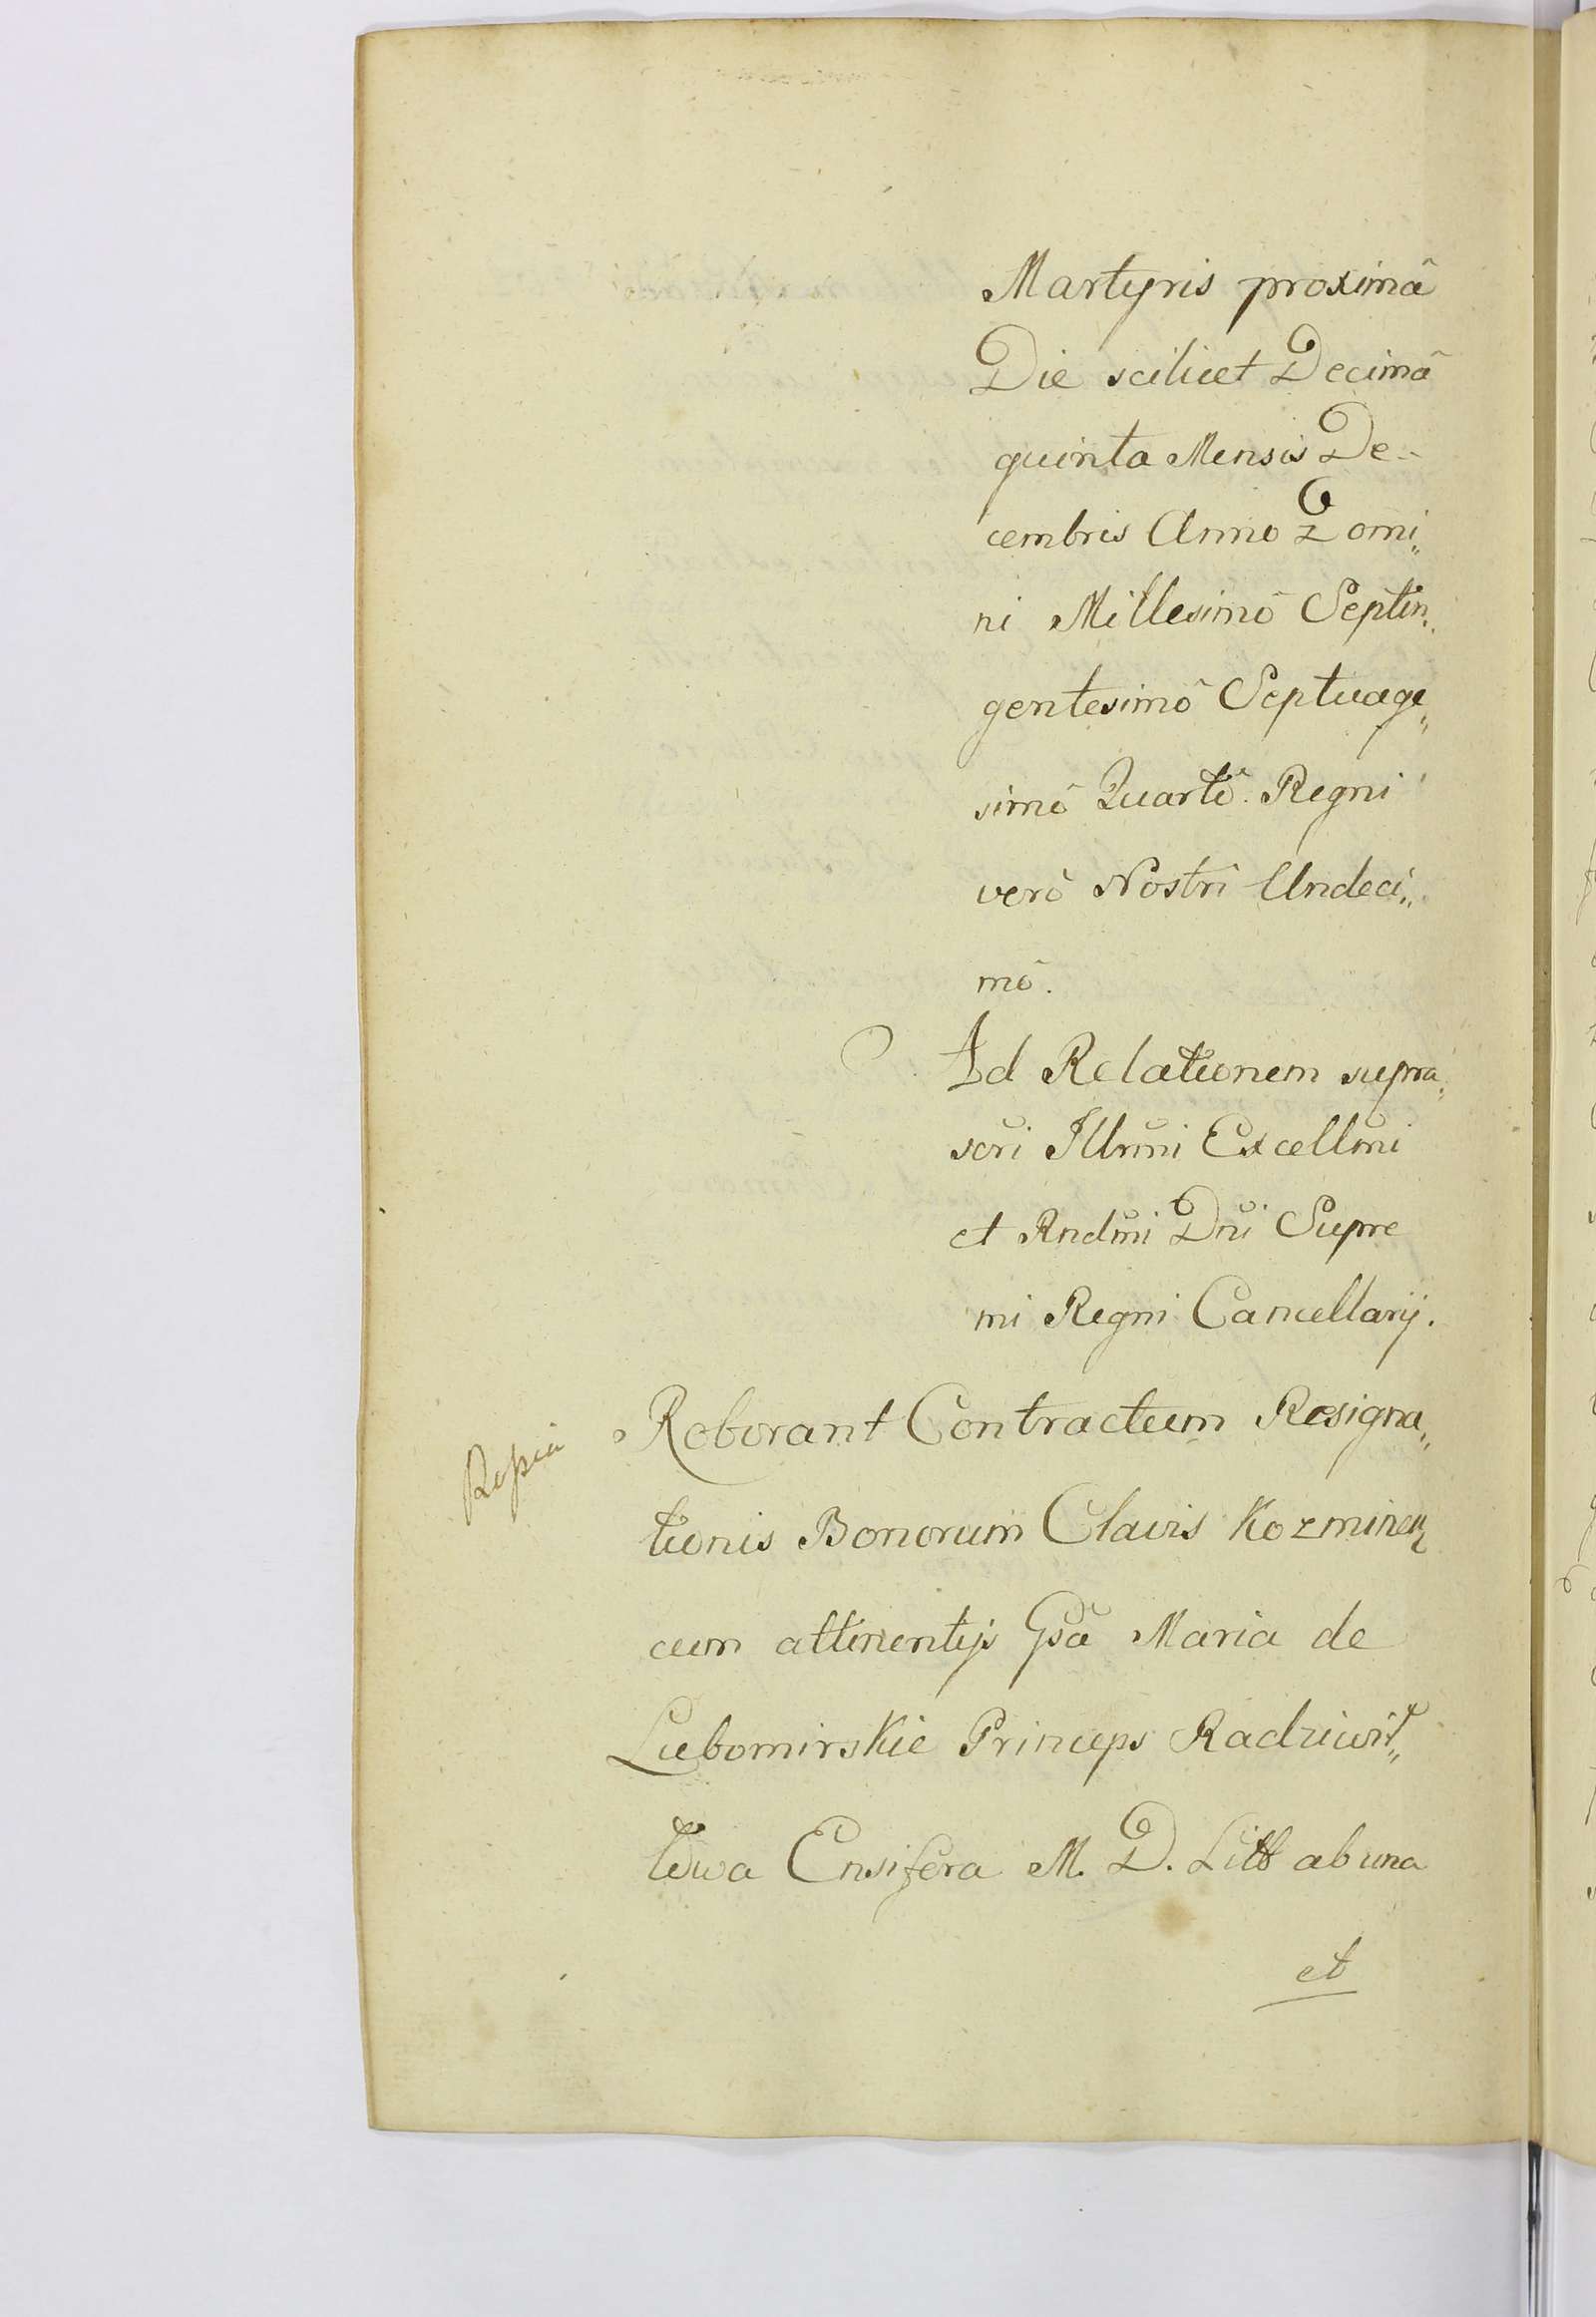 Martyris proximâ
Die scilicet Decimâ
quinta Mensis De-
cembris Anno Domi„
ni Millesimô Septin„
gentesimô Septuage„
simô Quartô. Regni
verò Nostri Undeci„
mô.
Ad Relationem supra„
scri Illmi Excellmi
et Rndmi Dni Supre
mi Regni Cancellarij.
Roborant Contractum Resigna„
tionis Bonorum Clavis Kozminen
cum attinentijs Gsa Maria de
Lubomirskie Princeps Radziwił„
łowa Ensifera M. D. Litt ab una
et